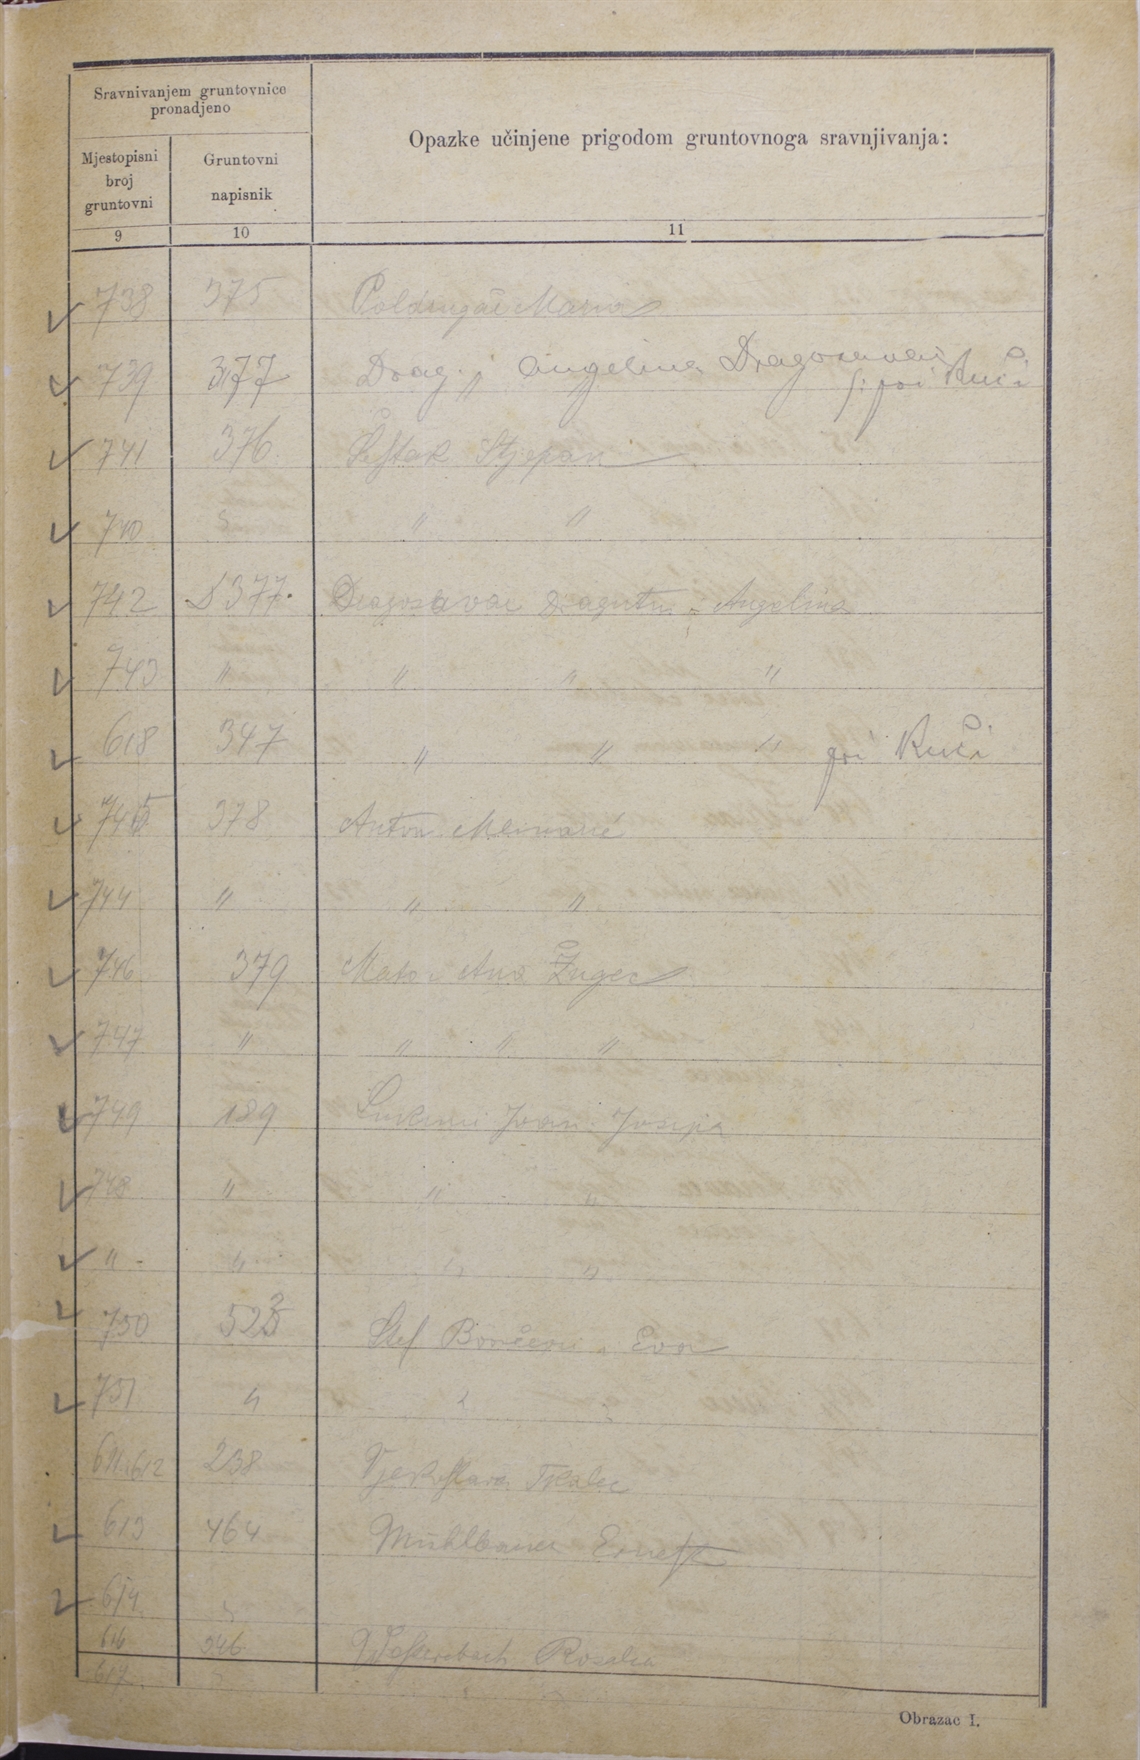 Sravnivanjem gruntovnice
pronadjeno
Opazke učinjene prigodom gruntovnoga sravnjivanja:
Mjestopisni
broj
gruntovni
Gruntovni
napisnik
9 10 11
738 375 Maria
739 377 Drag. " Angelina Dragosavac
pri Kući
741 376 Šestak Stjepan
740 " "
742 377 Dragosavac Dragutin i Angelina
743 " " " "
618 347 " " " pri Kući
745 378 Antun Mlinarić
744 " " "
746 379 Mato i Ana Žugec
747 " " " "
749 189 Ivan i Josipa
748 " " "
" " " "
750 523 Stef i Eva
751 "
611 612 238 Vjekoslava Tkalec
613 464 Mühlbauer Ernest
614
616 346 Rosalia
617
Obrazac I.